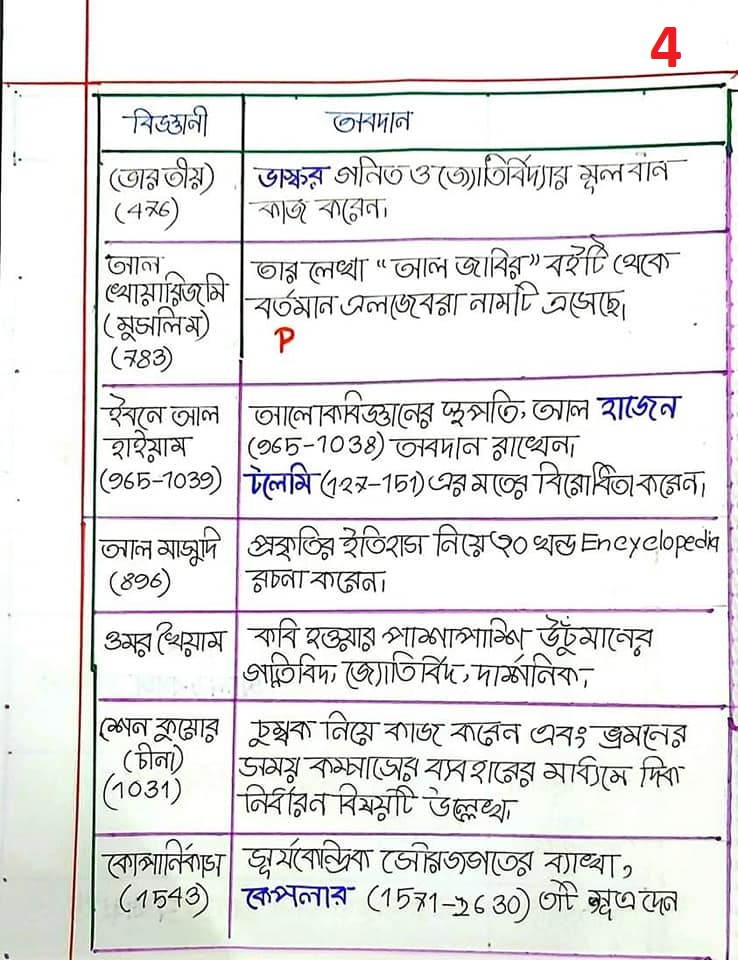 4
বিজ্ঞানী
অবদান
(ভারতীয়)
(476)
ভাস্কর গনিত ও জ্যোতির্বিদ্যার মূলবান
কাজ করেন।
আল
খোয়ারিজমি
(মুসলিম)
(783)
তার লেখা "আল জাবির" বইটি থেকে
বর্তমান এলজেবরা নামটি এসেছে।
P
ইবনে আল
হাইয়াম
(965-1039)
আলোকবিজ্ঞানের স্থপতি, আল হাজেন
(965-1038) অবদান রাখেন।
টলেমি (127-151) এর মতের বিরোধিতা করেন।
আল মাসুদি
(896)
প্রকৃতির ইতিহাস নিয়ে ৩০ খন্ড Encyclopedia
রচনা করেন।
ওমর খৈয়াম
কবি হওয়ার পাশাপাশি উঁচুমানের
গণিতবিদ, জ্যোতির্বিদ, দার্শনিক,
শেন কুয়োর
(চীনা)
(1031)
চুম্বক নিয়ে কাজ করেন এবং ভ্রমনের
সময় কম্পাসের ব্যবহারের মাধ্যিমে দিক
নির্ধারন বিষয়টি উল্লেখ্য
কোপার্নিকাস
(1543)
সূর্যকেন্দ্রিক সৌরজগতের ব্যাখা,
কেপলার (1571-2630) ৩টি সূত্র দেন